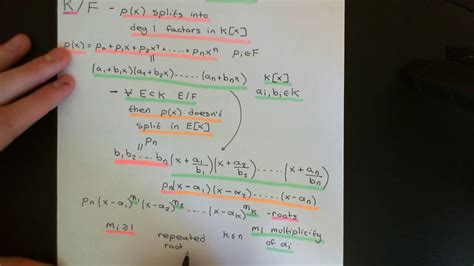 K/F - p(x) splits into
deg 1 factors in K[x]
p(x) = p₀+p₁x+p₂x²+.....+pₙxⁿ pᵢ∈F
||
(a₁+b₁x)(a₁+b₂x).....(aₙ+bₙx) K[x]
aᵢ,bᵢ∈K
- ∀ E⊂K E/F
then p(x) doesn't
split in E[x]
pₙ
||
b₁b₂...bₙ(x+a₁/b₁)(x+a₂/b₂).....(x+aₙ/bₙ)
pₙ(x-α₁)(x-α₂).....(x-αₙ)
pₙ(x-α₁)ⁿ¹(x-α₂)ⁿ².....(x-αₖ)ⁿᵏ -roots
mᵢ≥1 repeated root k≤n mᵢ multiplicity
of αᵢ